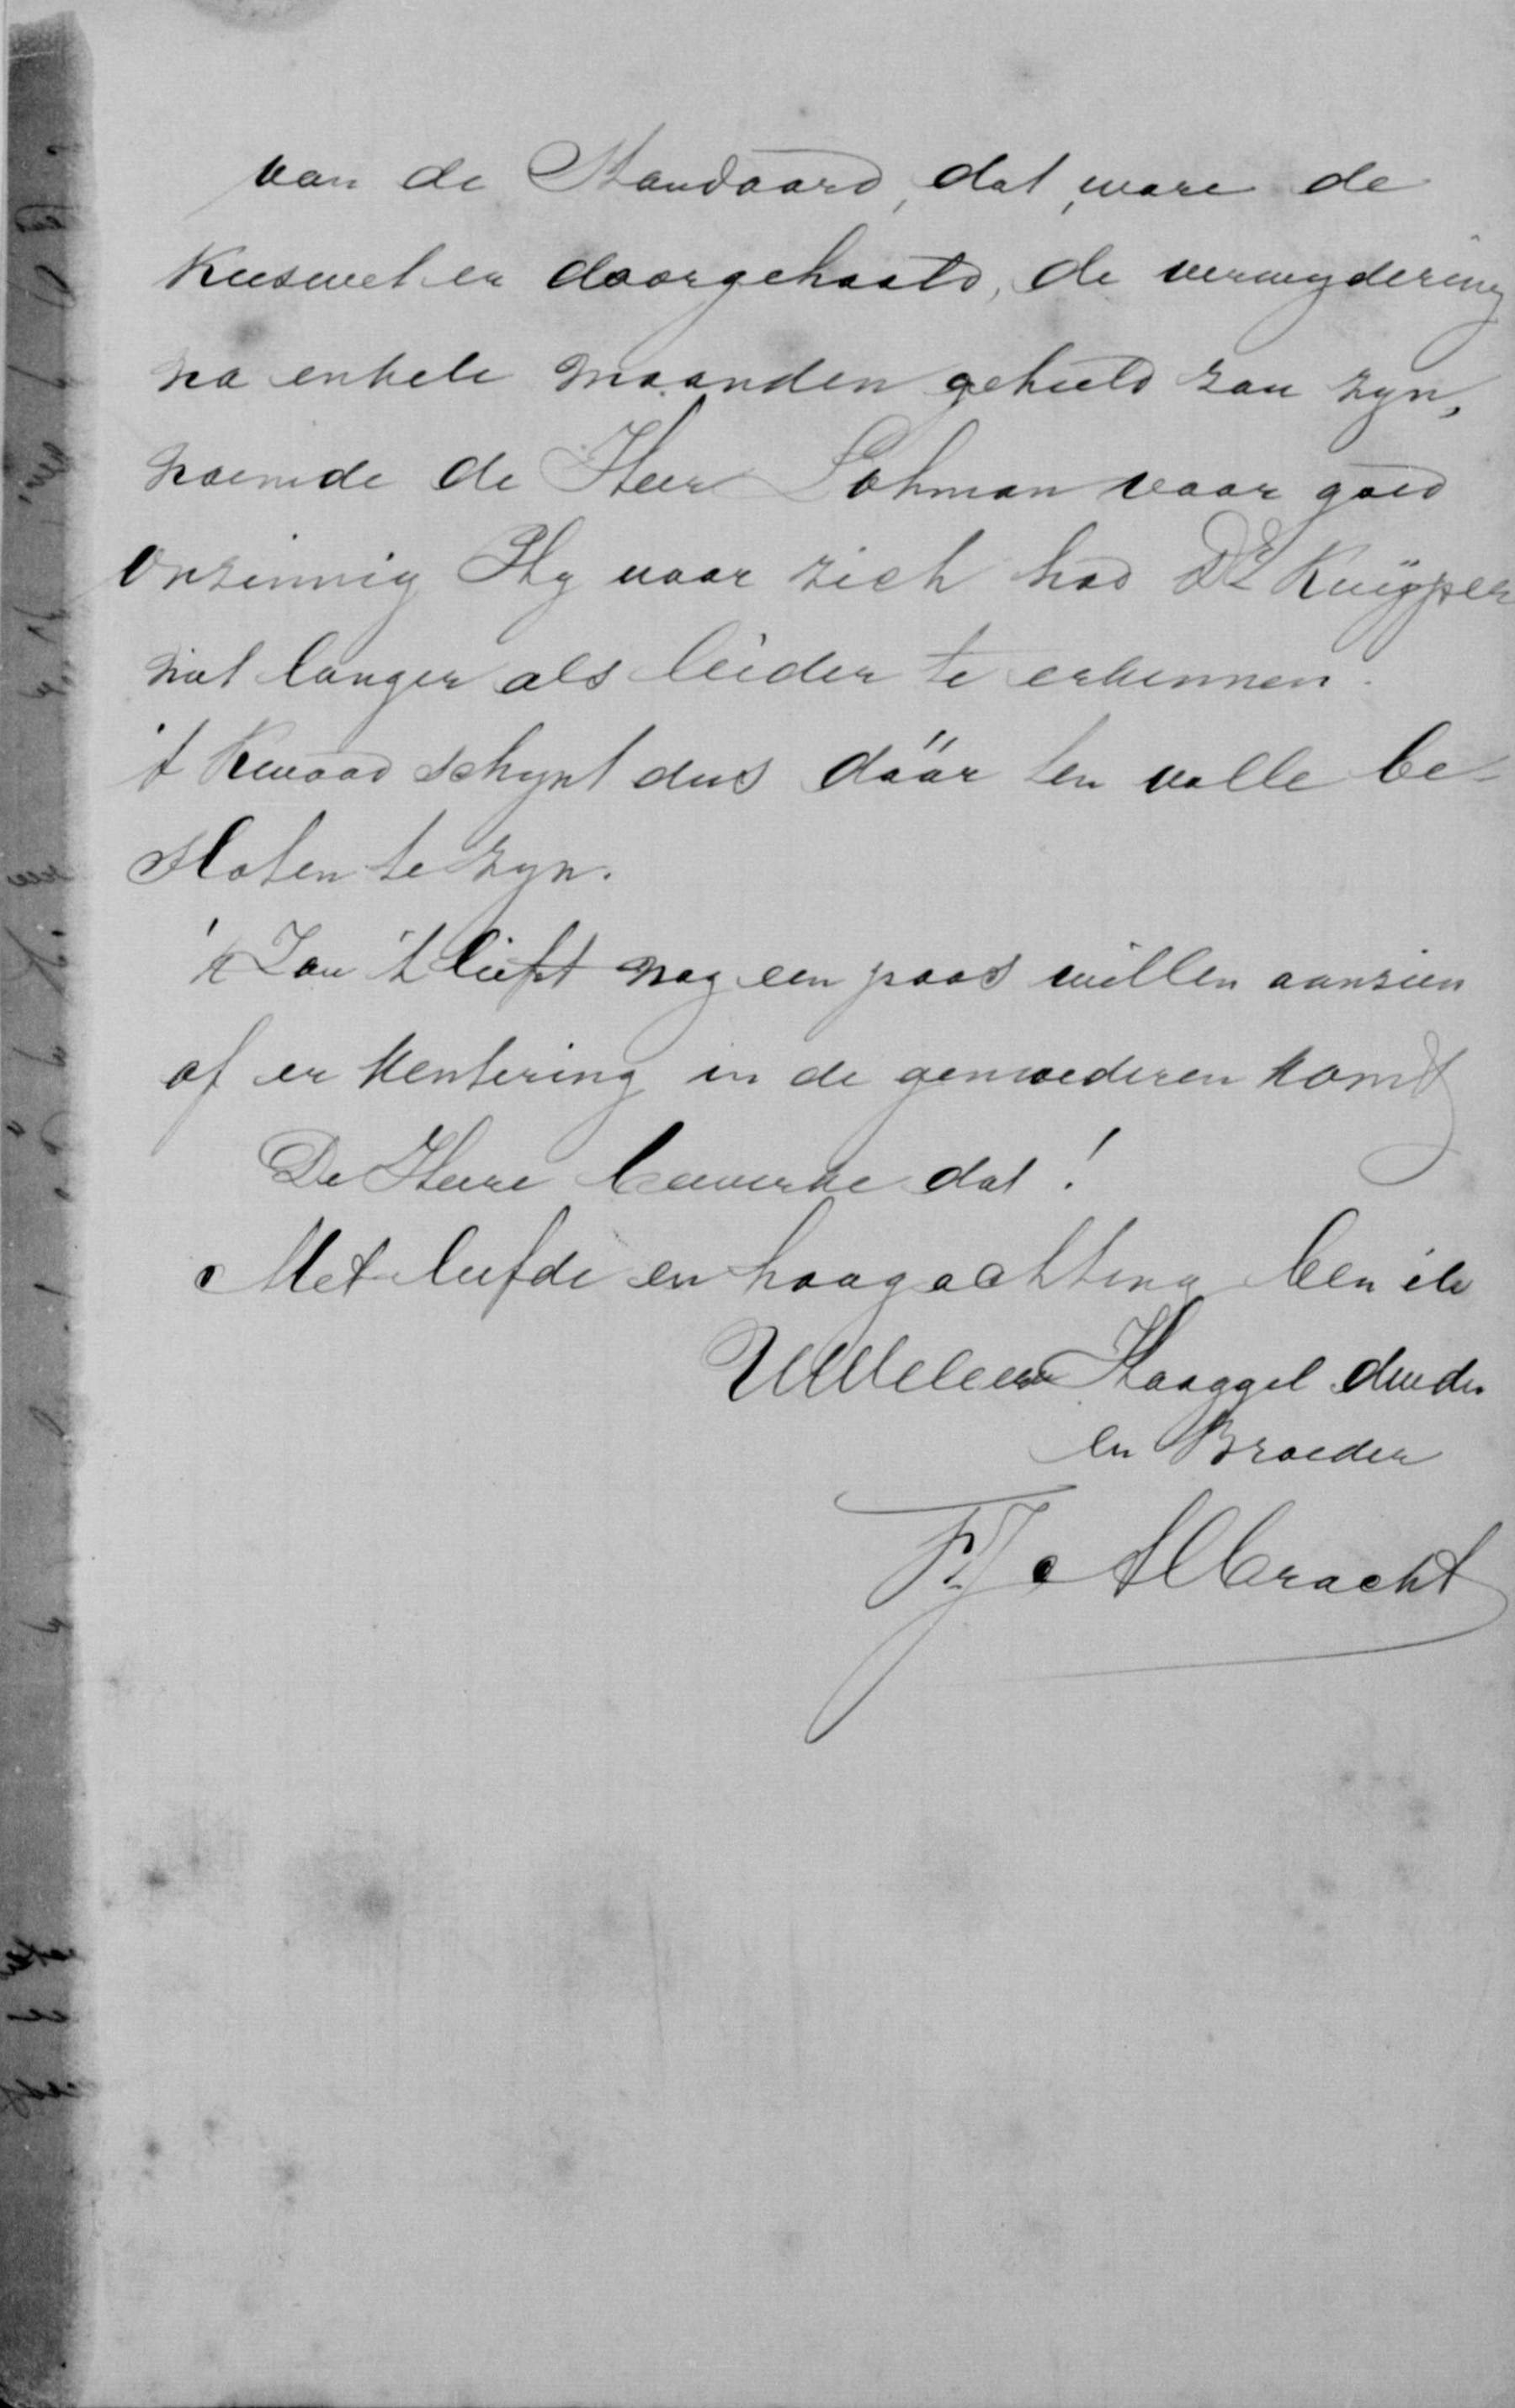 van de Standaard, dat, ware de
Kieswet er doorgehaald, de verwydering
na enkele maanden geheeld zou zyn,
noemde de Heer Lohman voor goed
onzinnig Hy voor zich had Dr Kuijper
niet langer als leider te erkennen.
't Kwaad schynt dus dáár ten volle be-
sloten te zyn.
'k Zou 't liefst nog een poos willen aanzien
of er kentering in de gemoederen komt
De Heere bewerke dat!
Met liefde en hoogachting ben ik
UwEd. Hooggel. dienden
en Broeder
F.J. Albracht